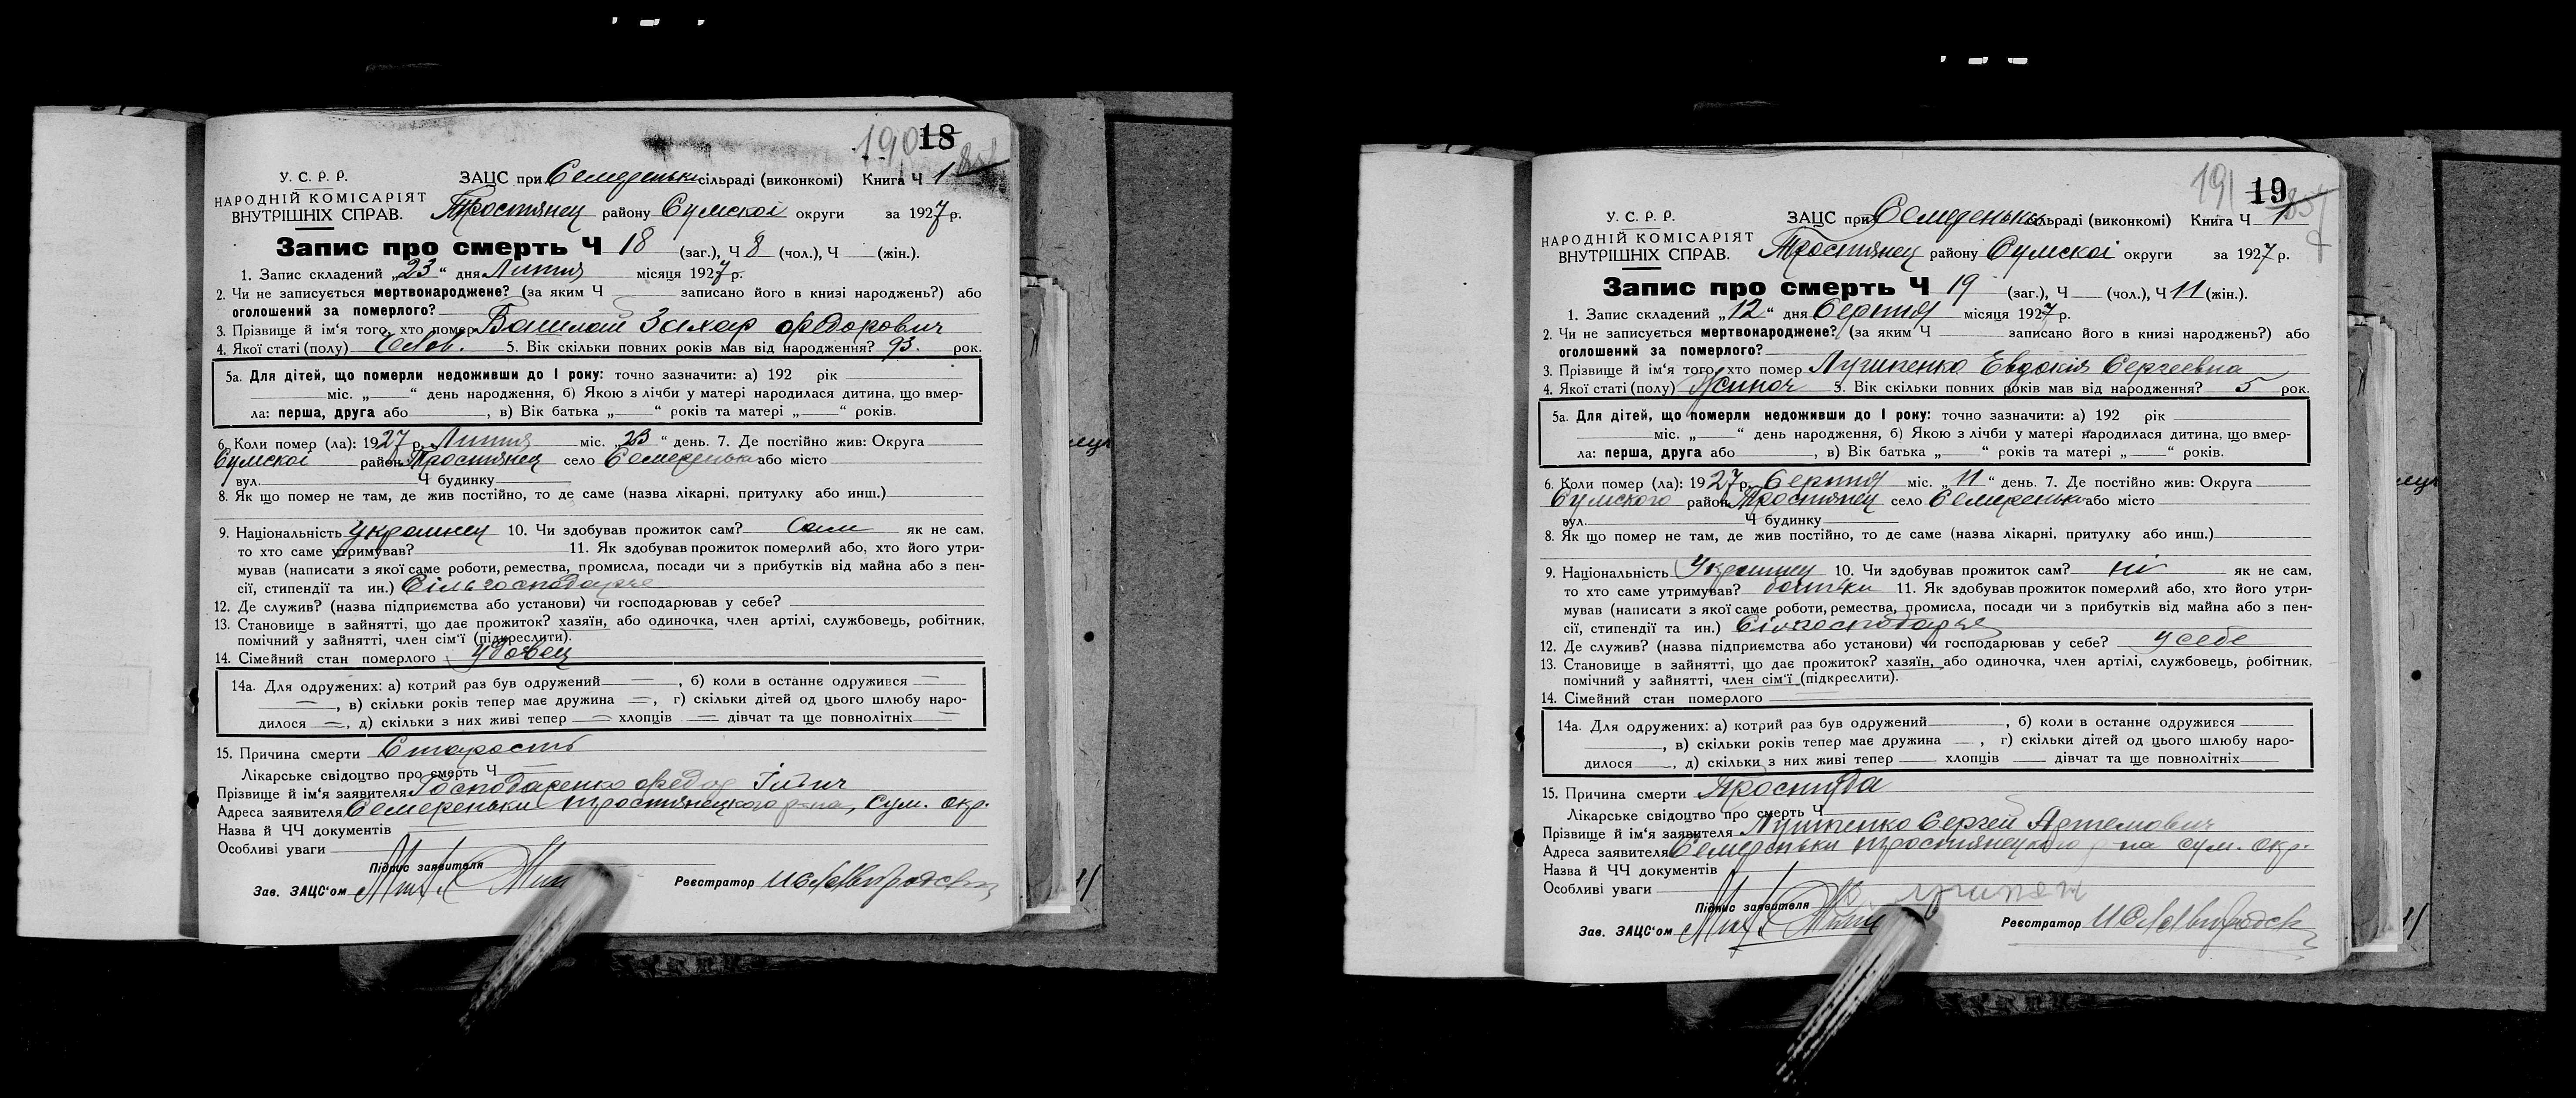 190 18
У. С. Р. Р.
НАРОДНІЙ КОМІСАРІЯТ
ВНУТРІШНІХ СПРАВ.
ЗАЦС при Семереньки сільраді (виконкомі) Книга Ч 1
Тростянец району Сумскоі округи за 1927 р.
Запис про смерть Ч 18 (заг.), Ч 8 (чол.), Ч (жін.).
1. Запис складений „23“ дня Липня місяця 1927 р.
2. Чи не записується мертвонароджене? (за яким Ч записано його в книзі народжень?) або
оголошений за померлого?
3. Прізвище й ім'я того, хто помер Захар Федорович
4. Якої статі (полу) Чолов. 5. Вік скільки повних років мав від народження? 93 рок.
5а. Для дітей, що померли недоживши до 1 року: точно зазначити: а) 192 рік
міс. „ “ день народження, б) Якою з лічби у матері народилася дитина, що вмер-
ла: перша, друга або , в) Вік батька „ “ років та матері „ “ років.
6. Коли помер (ла): 1927 р. Липня міс. „23“ день. 7. Де постійно жив: Округа
Сумскоі район Тростянец село Семереньки або місто
вул. Ч будинку
8. Як що помер не там, де жив постійно, то де саме (назва лікарні, притулку або инш.)
9. Національність Украинец 10. Чи здобував прожиток сам? Сам як не сам,
то хто саме утримував? 11. Як здобував прожиток померлий або, хто його утри-
мував (написати з якої саме роботи, ремества, промисла, посади чи з прибутків від майна або з пен-
сії, стипендії та ин.) Сільгосподарче
12. Де служив? (назва підприємства або установи) чи господарював у себе?
13. Становище в зайнятті, що дає прожиток? хазяїн, або одиночка, член артілі, службовець, робітник,
помічний у зайнятті, член сім'ї (підкреслити).
14. Сімейний стан померлого Удовец
14а. Для одружених: а) котрий раз був одружений , б) коли в останнє одружився
, в) скільки років тепер має дружина , г) скільки дітей од цього шлюбу наро-
дилося , д) скільки з них живі тепер хлопців дівчат та ще повнолітніх
15. Причина смерти Старость
Лікарське свідоцтво про смерть Ч
Прізвище й ім'я заявителя Господаренко Федор
Адреса заявителя Семереньки тростянецкого р-на, сум. окр.
Назва й ЧЧ документів
Особливі уваги
Підпис заявителя
Зав. ЗАЦС'ом Реєстратор
191 19
У. С. Р. Р.
НАРОДНІЙ КОМІСАРІЯТ
ВНУТРІШНІХ СПРАВ.
ЗАЦС при Семереньки сільраді (виконкомі) Книга Ч 1
Тростянец району Сумскоі округи за 1927 р.
Запис про смерть Ч 19 (заг.), Ч (чол.), Ч 11 (жін.).
1. Запис складений „12“ дня Серпня місяця 1927 р.
2. Чи не записується мертвонароджене? (за яким Ч записано його в книзі народжень?) або
оголошений за померлого?
3. Прізвище й ім'я того, хто помер Евдокія Сергеевна
4. Якої статі (полу) Жиноч 5. Вік скільки повних років мав від народження? 5 рок.
5а. Для дітей, що померли недоживши до 1 року: точно зазначити: а) 192 рік
міс. „ “ день народження, б) Якою з лічби у матері народилася дитина, що вмер-
ла: перша, друга або , в) Вік батька „ “ років та матері „ “ років.
6. Коли помер (ла): 1927 р. Серпня міс. „11“ день. 7. Де постійно жив: Округа
Сумского район Тростянец село Семереньки або місто
вул. Ч будинку
8. Як що помер не там, де жив постійно, то де саме (назва лікарні, притулку або инш.)
9. Національність Украинец 10. Чи здобував прожиток сам? ні як не сам,
то хто саме утримував? батьки 11. Як здобував прожиток померлий або, хто його утри-
мував (написати з якої саме роботи, ремества, промисла, посади чи з прибутків від майна або з пен-
сії, стипендії та ин.) Сільгосподарче
12. Де служив? (назва підприємства або установи) чи господарював у себе? у себе
13. Становище в зайнятті, що дає прожиток? хазяїн, або одиночка, член артілі, службовець, робітник,
помічний у зайнятті, член сім'ї (підкреслити).
14. Сімейний стан померлого
14а. Для одружених: а) котрий раз був одружений , б) коли в останнє одружився
, в) скільки років тепер має дружина , г) скільки дітей од цього шлюбу наро-
дилося , д) скільки з них живі тепер хлопців дівчат та ще повнолітніх
15. Причина смерти Простуда
Лікарське свідоцтво про смерть Ч
Прізвище й ім'я заявителя Сергей Артемович
Адреса заявителя Семереньки тростянецкого р-на сум. окр.
Назва й ЧЧ документів
Особливі уваги
Підпис заявителя
Зав. ЗАЦС'ом Реєстратор